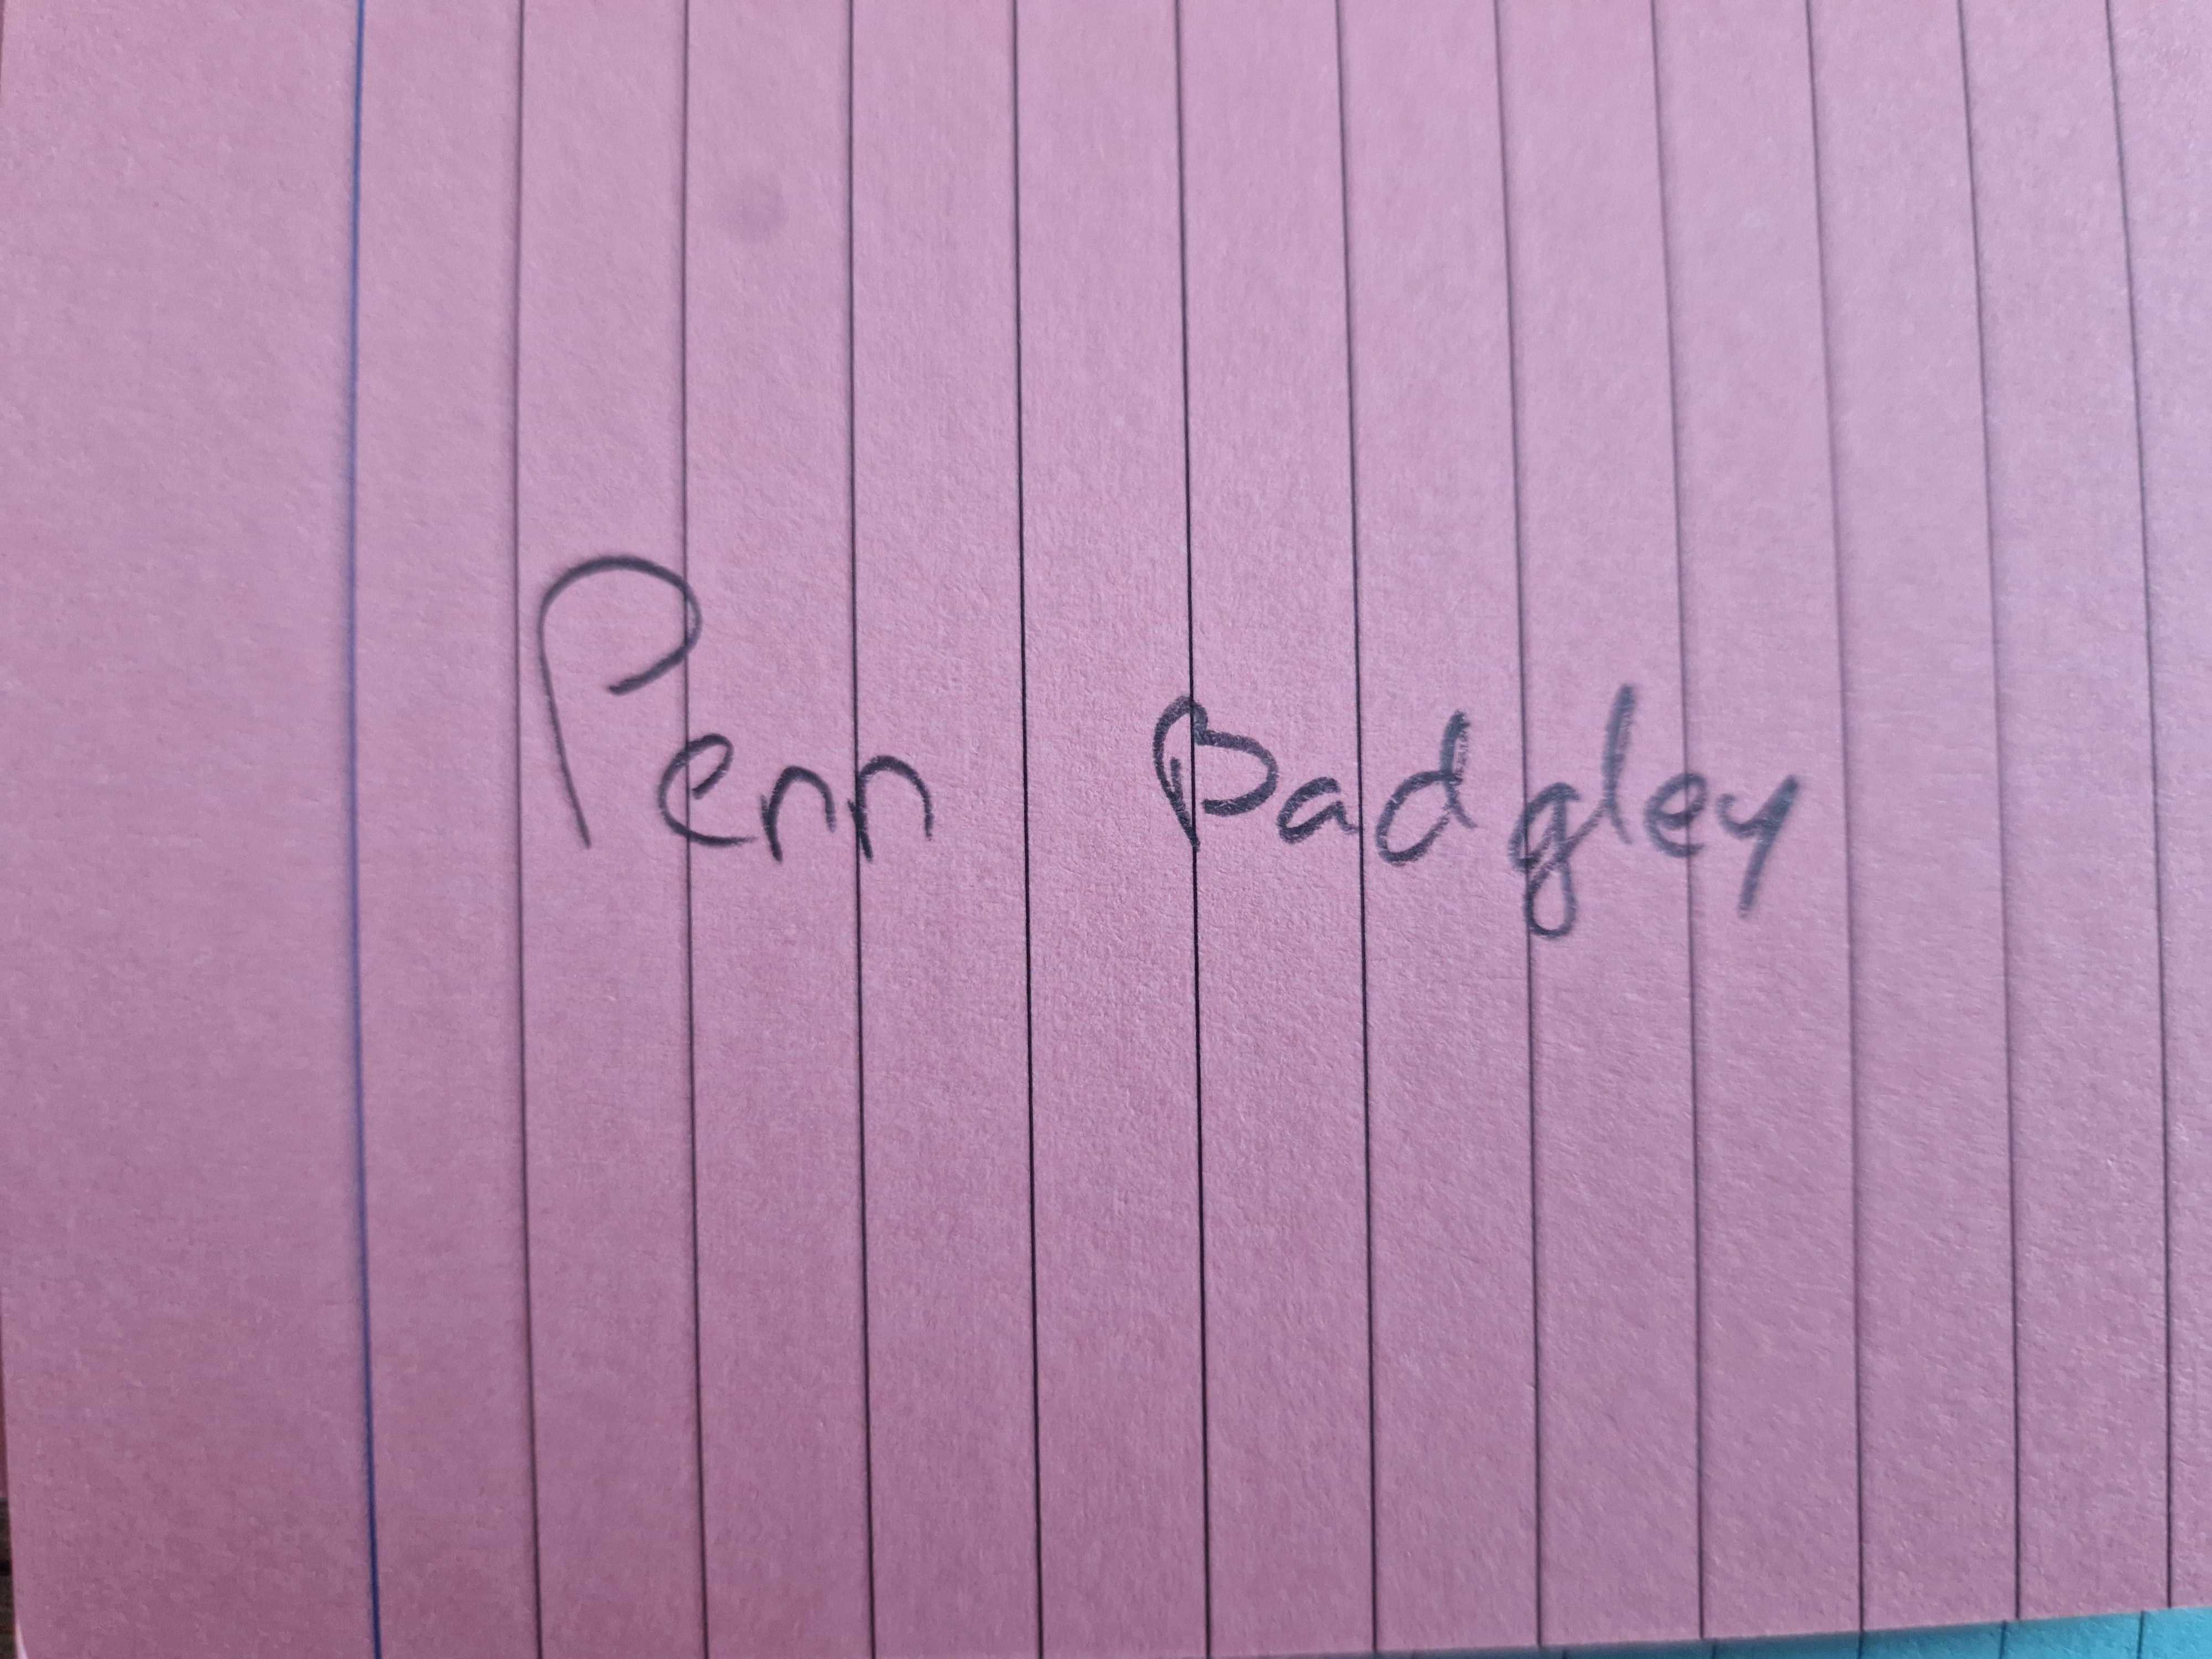 Penn Badgley